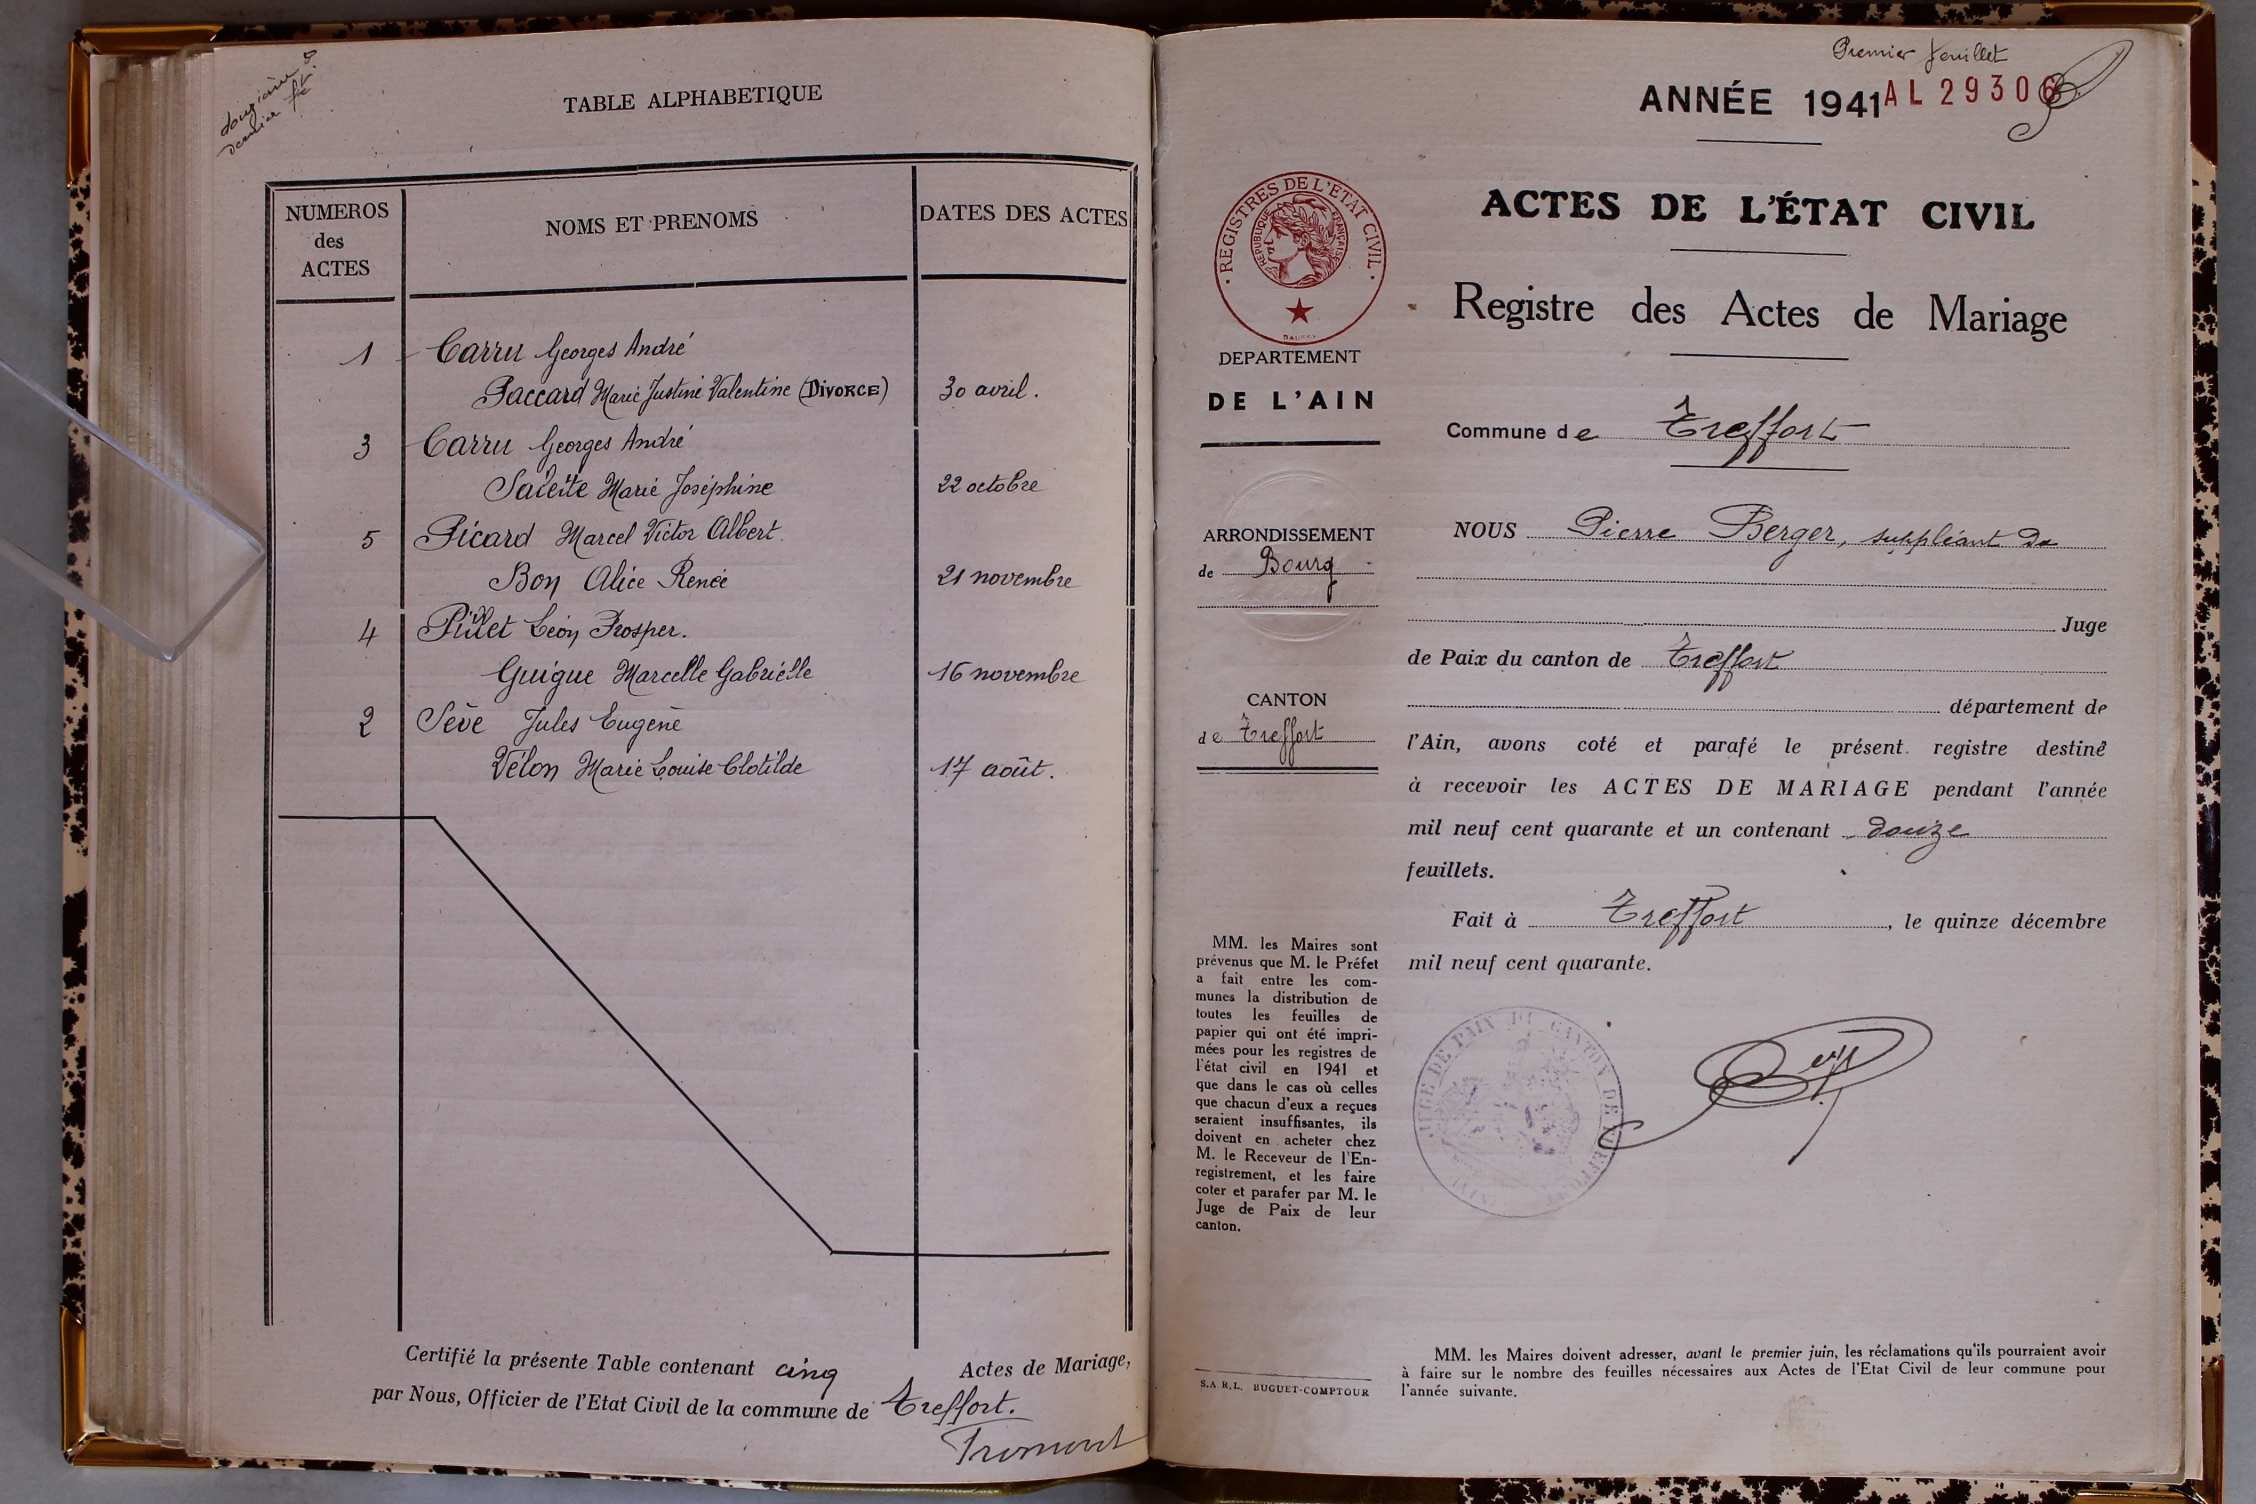 douzième &
dernier ft
TABLE ALPHABETIQUE
NUMEROS
des
ACTES
NOMS ET PRENOMS
DATES DES ACTES
1 Carru Georges André
Paccard Marie Justine Valentine (DIVORCE) 30 avril.
3 Carru Georges André
Marie Joséphine 22 octobre
5 Picard Marcel Victor Albert.
Bon Alice Renée 21 novembre
4 Léon Prosper.
Guigue Marcelle Gabrielle 16 novembre
2 Sève Jules Eugène
Vélon Marie Louise Clotilde 17 août.
Certifié la présente Table contenant cinq Actes de Mariage,
par Nous, Officier de l'Etat Civil de la commune de Treffort.
Premier feuillet
ANNÉE 1941 AL 29306
ACTES DE L'ÉTAT CIVIL
Registre des Actes de Mariage
Commune de Treffort
REGISTRES DE L'ETAT CIVIL
REPUBLIQUE FRANÇAISE
DEPARTEMENT
DE L'AIN
ARRONDISSEMENT
de Bourg
CANTON
de Treffort
MM. les Maires sont
prévenus que M. le Préfet
a fait entre les com-
munes la distribution de
toutes les feuilles de
papier qui ont été impri-
mées pour les registres de
l'état civil en 1941 et
que dans le cas où celles
que chacun d'eux a reçues
seraient insuffisantes, ils
doivent en acheter chez
M. le Receveur de l'En-
registrement, et les faire
coter et parafer par M. le
Juge de Paix de leur
canton.
S.A.R.L. BUGUET-COMPTOUR
NOUS Pierre Berger, suppléant du
Juge
de Paix du canton de Treffort
département de
l'Ain, avons coté et parafé le présent registre destiné
à recevoir les ACTES DE MARIAGE pendant l'année
mil neuf cent quarante et un contenant douze
feuillets.
Fait à Treffort, le quinze décembre
mil neuf cent quarante.
JUGE DE PAIX DU CANTON DE TREFFORT
MM. les Maires doivent adresser, avant le premier juin, les réclamations qu'ils pourraient avoir
à faire sur le nombre des feuilles nécessaires aux Actes de l'Etat Civil de leur commune pour
l'année suivante.